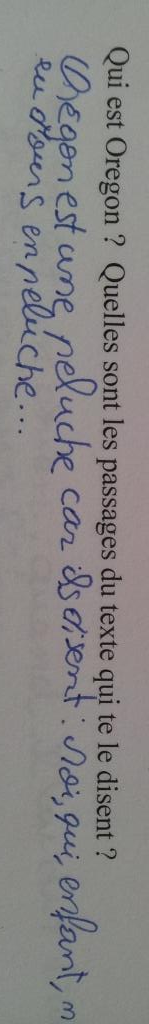 Qui est Oregon ? Quelles sont les passages du texte qui te le disent ?
Oregon est une peluche car ils disent : Moi, qui, enfant, n
eu d'ours en peluche...